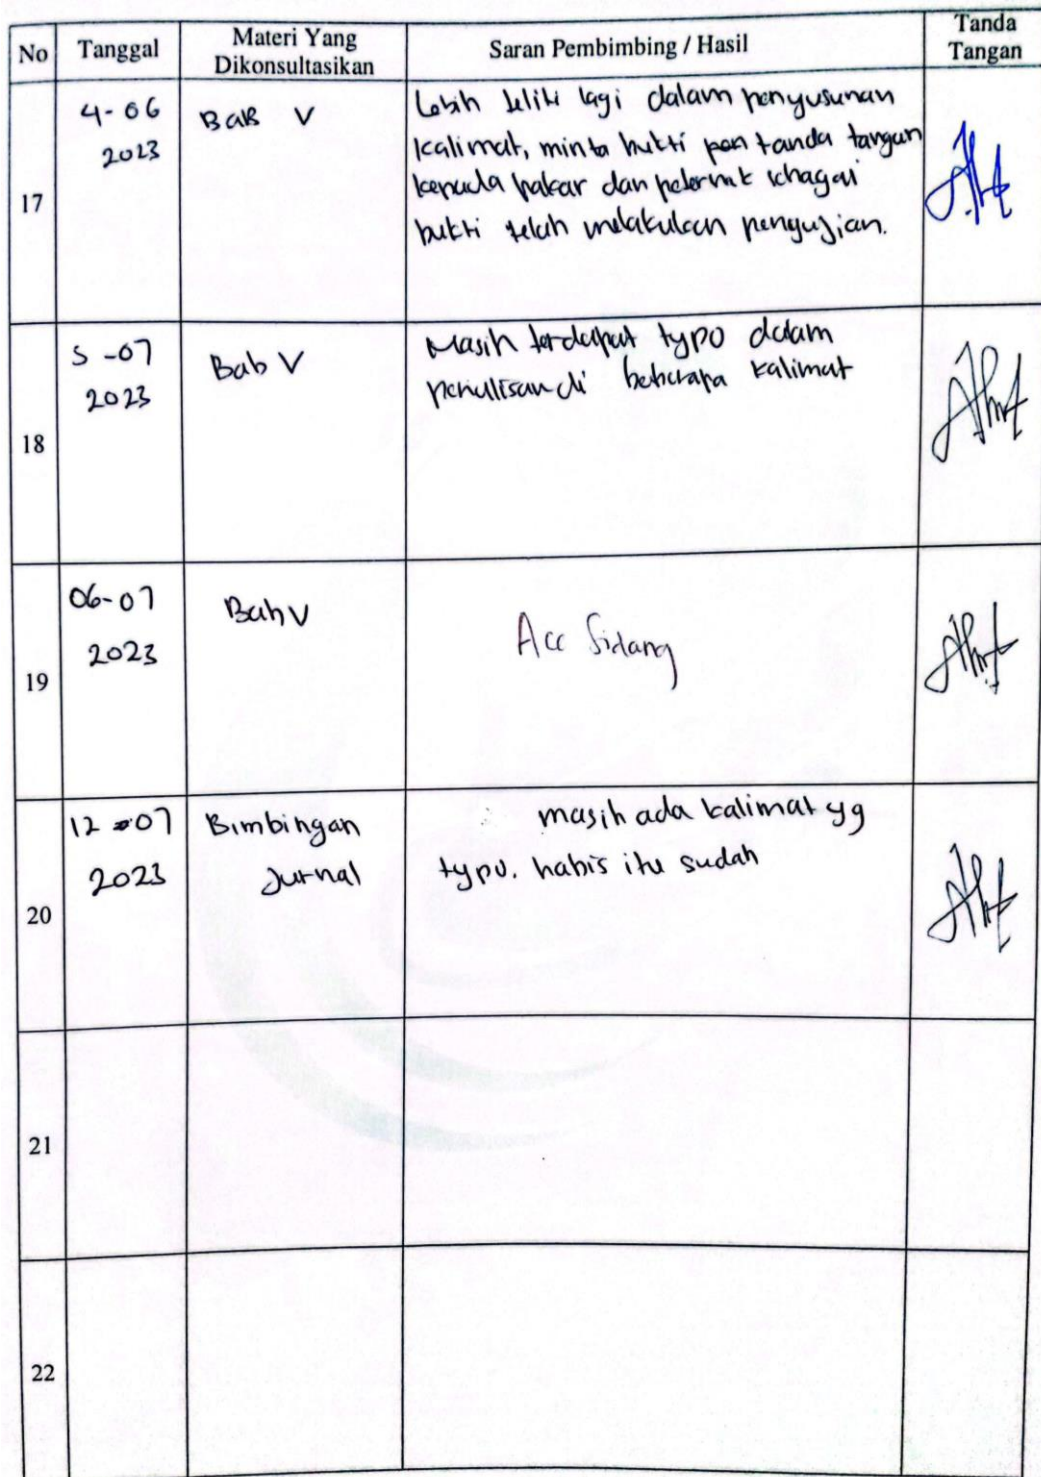 No Tanggal Materi Yang Dikonsultasikan Saran Pembimbing / Hasil Tanda Tangan
17
4-06
2023
BaB V
Lebih teliti lagi dalam penyusunan
kalimat, minta bukti tanda tangan
kepada pakar dan peternak sebagai
bukti telah melakukan pengujian.
18
5-07
2023
Bab V
Masih terdapat typo dalam
penulisan di beberapa kalimat
19
06-07
2023
Bab V
Acc Sidang
20
12-07
2023
Bimbingan
Jurnal
masih ada kalimat yg
typo. habis itu sudah
21
22